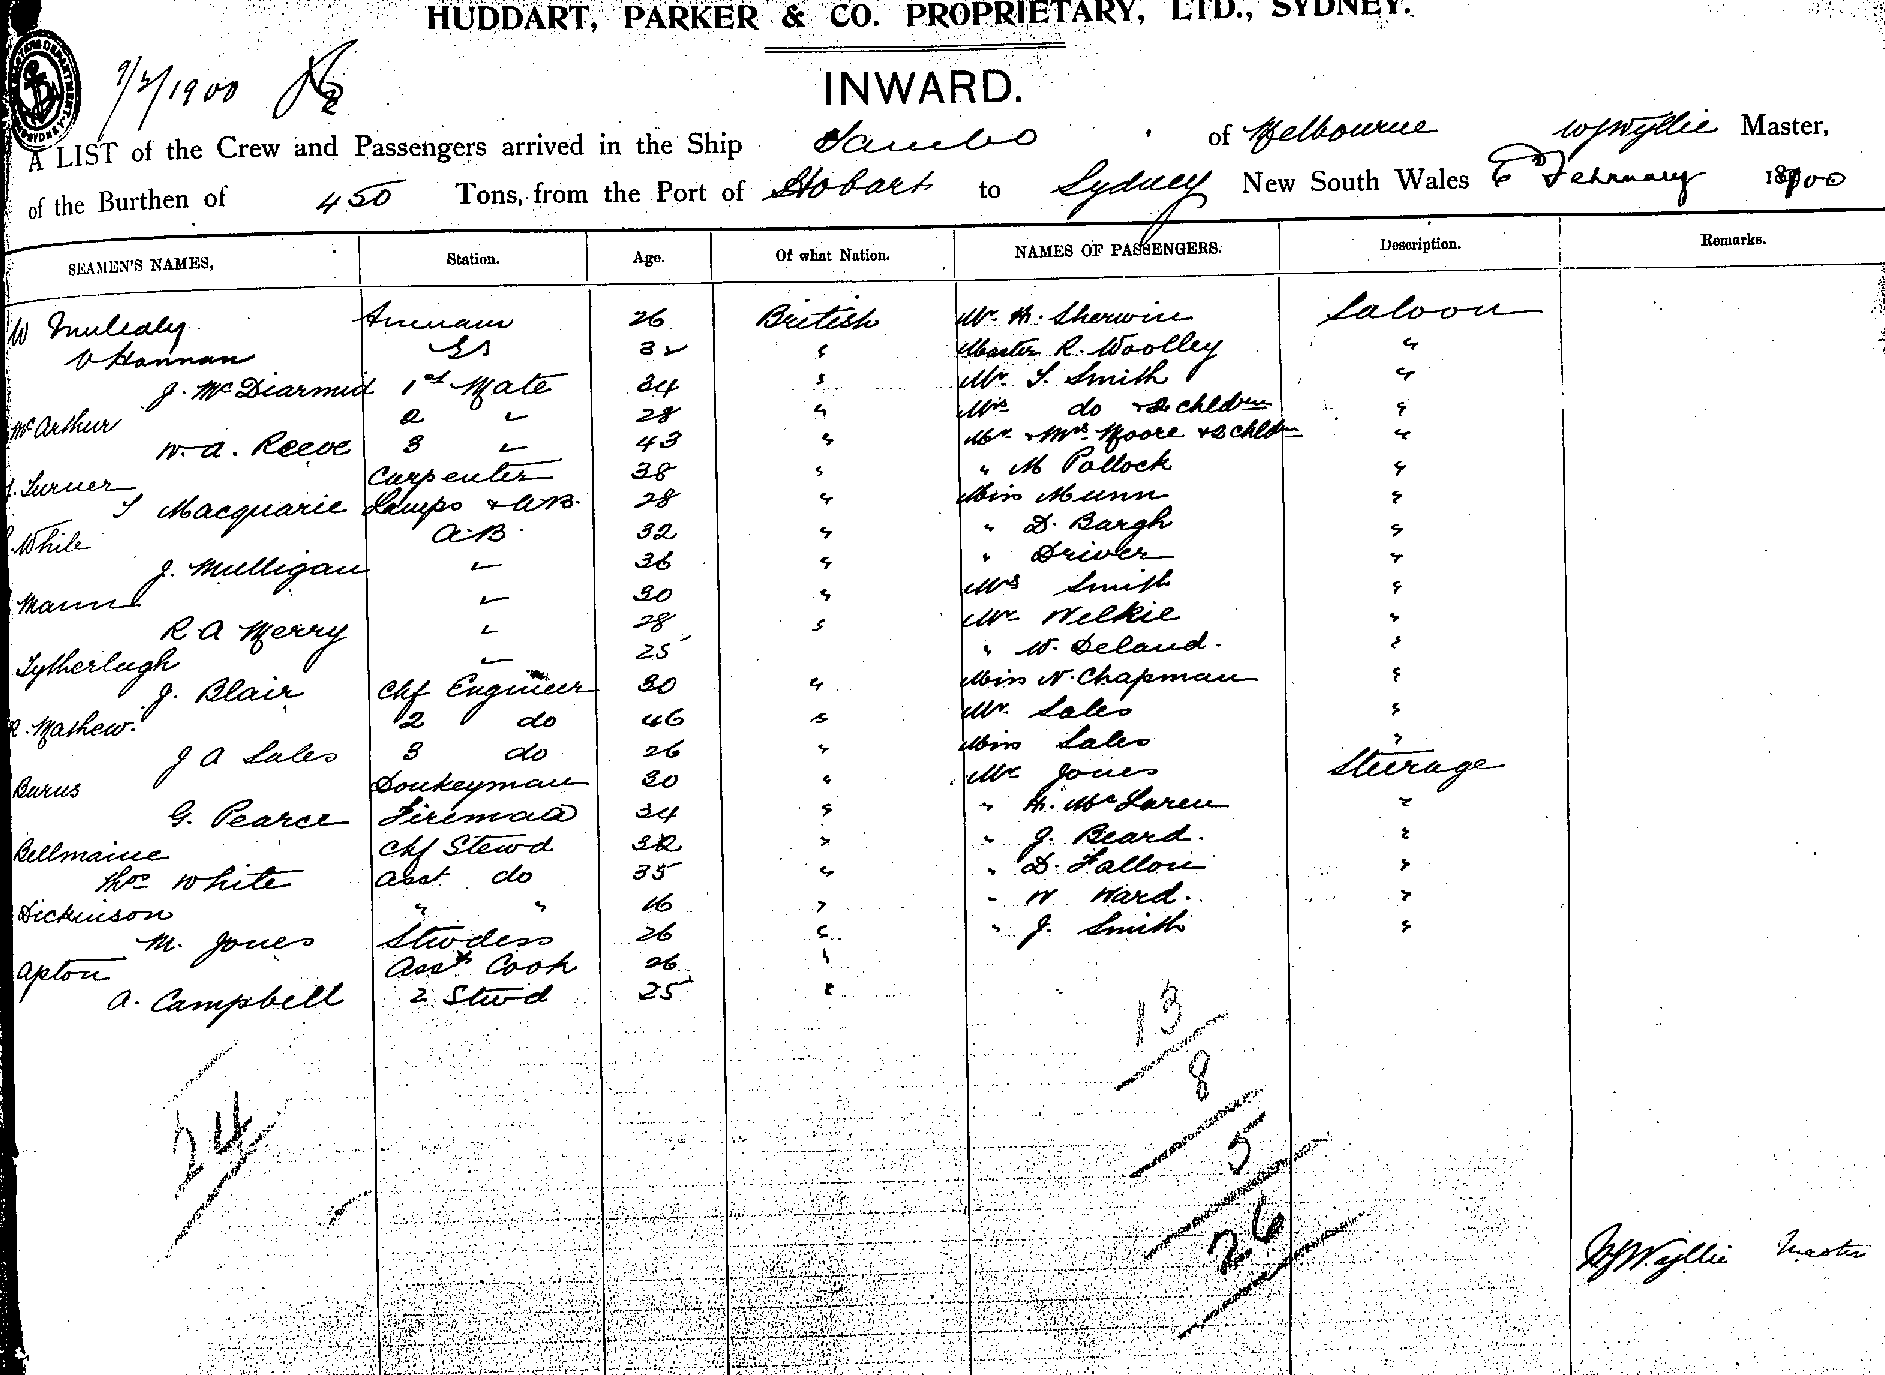 HUDDART, PARKER & CO. PROPRIETARY, LTD., SYDNEY.
INWARD.
9/2/1900
A LIST of the Crew and Passengers arrived in the Ship Tambo of Melbourne W J Wyllie Master,
of the Burthen of 450 Tons, from the Port of Hobart to Sydney New South Wales 6 February 1900
SEAMEN'S NAMES, Station. Age. Of what Nation. NAMES OF PASSENGERS. Description. Remarks.
W Mulealy Fireman 26 British Mr. H. Sherwin Saloon
O Hannan 32 " Master R. Woolley "
J. McDiarmid 1st Mate 34 " Mr. T. Smith "
McArthur 2 " 28 " Mrs do & 2 chldren "
W. A. Reeve 3 " 43 " Mr. & Mrs. Moore & 2 chldn "
Turner Carpenter 38 " " M Pollock "
T Macquarie Lamps & AB 28 " Miss Munn "
White A.B. 32 " " D. Bargh "
J. Mulligan " 36 " " Driver "
Mann " 30 " Mrs Smith "
R A Merry " 28 " Mr Wilkie "
Tytherlegh " 25 " W. Deland. "
J. Blair Chf Engineer 30 " Miss N. Chapman "
R. Mathew. 2 do 46 " Mr. Sales "
J A Sales 3 do 26 " Miss Sales "
Burns Donkeyman 30 " Mr Jones Steerage
G. Pearce Fireman 34 " " H. McLaren "
Bellmaine Chf Stewd 32 " " J. Beard. "
Thos White Asst. do 35 " " D. Fallon "
Dickinson " " 16 " " W Ward. "
M. Jones Stwdess 26 " " J. Smith "
Apton Asst Cook 26 "
A. Campbell 2 Stwd 25 "
13
8
24
5
26
W J Wyllie Master